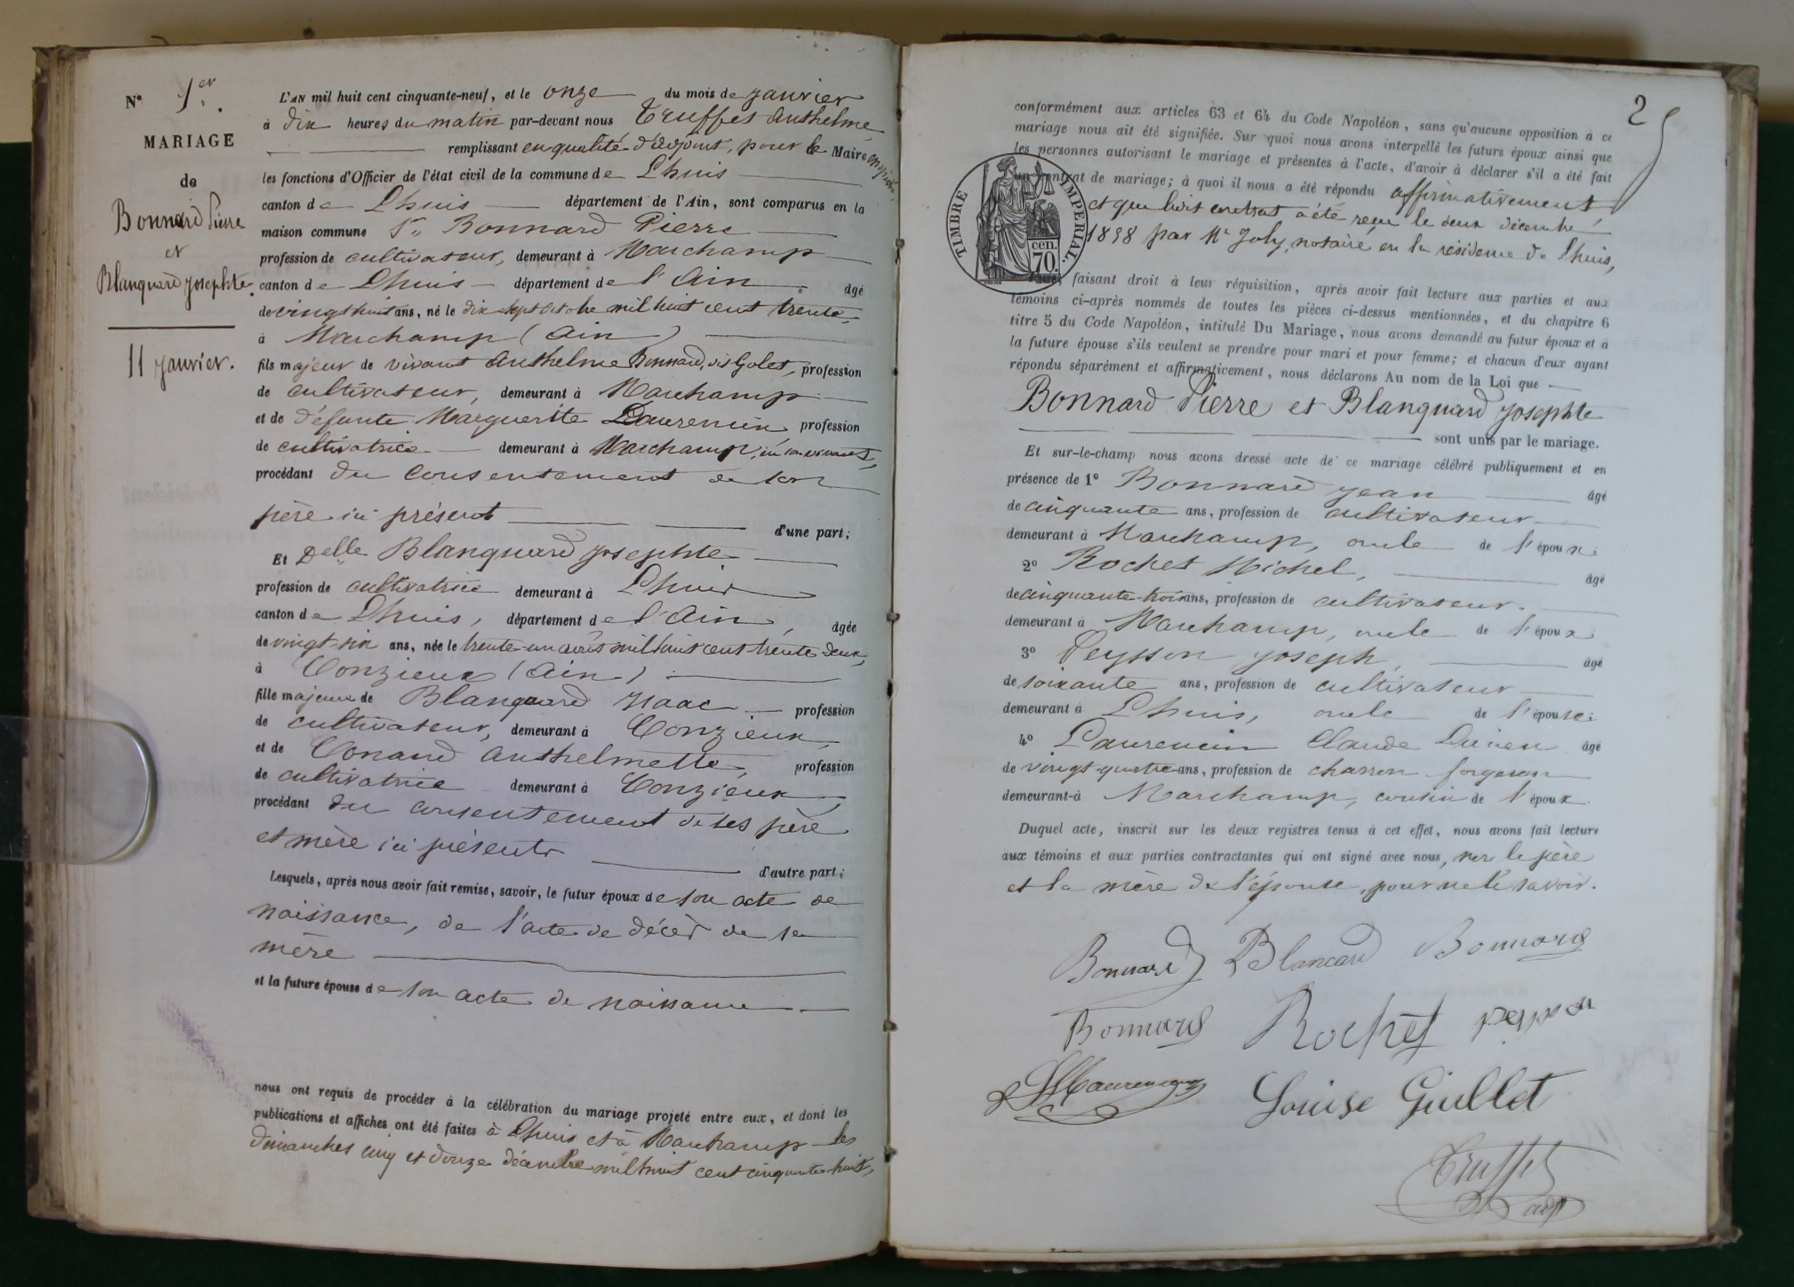 N° 1er.
MARIAGE
de
Bonnard Pierre
et
Blanquard Josephte.
11 janvier.
L'AN mil huit cent cinquante-neuf, et le onze du mois de janvier
à dix heures du matin par-devant nous Truffet Anthelme
remplissant en qualité d'adjoint, pour le Maire
les fonctions d'Officier de l'état civil de la commune de Lhuis
canton de Lhuis département de l'Ain, sont comparus en la
maison commune Sr Bonnard Pierre
profession de cultivateur, demeurant à Marchamp
canton de Lhuis département de l'Ain, âgé
de vingt huit ans, né le dix sept octobre mil huit cent trente,
à Marchamp (Ain)
fils majeur de vivant Anthelme Bonnard, dit Golet, profession
de cultivateur, demeurant à Marchamp
et de défunte Marguerite Laurencin, profession
de cultivatrice demeurant à Marchamp,
procédant du consentement de son
père ici présent d'une part;
Et Delle Blanquard Josephte
profession de cultivatrice demeurant à Lhuis
canton de Lhuis, département de l'Ain, âgée
de vingt-six ans, née le trente-un août mil huit cent trente deux,
à Conzieux (Ain)
fille majeure de Blanquard Isaac profession
de cultivateur, demeurant à Conzieux,
et de Conand Anthelmette, profession
de cultivatrice demeurant à Conzieux,
procédant du consentement de ses père
et mère ici présents d'autre part;
Lesquels, après nous avoir fait remise, savoir, le futur époux de son acte de
naissance, de l'acte de décès de sa
mère
et la future épouse de son acte de naissance
nous ont requis de procéder à la célébration du mariage projeté entre eux, et dont les
publications et affiches ont été faites à Lhuis et à Marchamp les
dimanches cinq et douze décembre mil huit cent cinquante huit,
2
conformément aux articles 63 et 64 du Code Napoléon, sans qu'aucune opposition à ce
mariage nous ait été signifiée. Sur quoi nous avons interpellé les futurs époux ainsi que
les personnes autorisant le mariage et présentes à l'acte, d'avoir à déclarer s'il a été fait
un contrat de mariage; à quoi il nous a été répondu affirmativement
et que leur contrat a été reçu le deux décembre
1858 par Me Joly, notaire en la résidence de Lhuis,
TIMBRE IMPERIAL.
70. cen.
Nous, faisant droit à leur réquisition, après avoir fait lecture aux parties et aux
témoins ci-après nommés de toutes les pièces ci-dessus mentionnées, et du chapitre 6
titre 5 du Code Napoléon, intitulé Du Mariage, nous avons demandé au futur époux et à
la future épouse s'ils veulent se prendre pour mari et pour femme; et chacun d'eux ayant
répondu séparément et affirmaticement, nous déclarons Au nom de la Loi que
Bonnard Pierre et Blanquard Josephte
sont unis par le mariage.
Et sur-le-champ nous avons dressé acte de ce mariage célébré publiquement et en
présence de 1° Bonnard Jean âgé
de cinquante ans, profession de cultivateur
demeurant à Marchamp, oncle de l'époux
2° Rochet Michel, âgé
de cinquante-trois ans, profession de cultivateur.
demeurant à Marchamp, oncle de l'époux
3° Peysson Joseph, âgé
de soixante ans, profession de cultivateur
demeurant à Lhuis, oncle de l'épouse
4° Laurencin Claude Lucien âgé
de vingt-quatre ans, profession de charron forgeron
demeurant-à Marchamp, cousin de l'époux.
Duquel acte, inscrit sur les deux registres tenus à cet effet, nous avons fait lecture
aux témoins et aux parties contractantes qui ont signé avec nous, non le père
et la mère de l'épouse, pour ne le savoir.
Bonnard Blancard Bonnard
Bonnard Rochet Peysson
Laurencin Louise Guillet
Truffet
adj